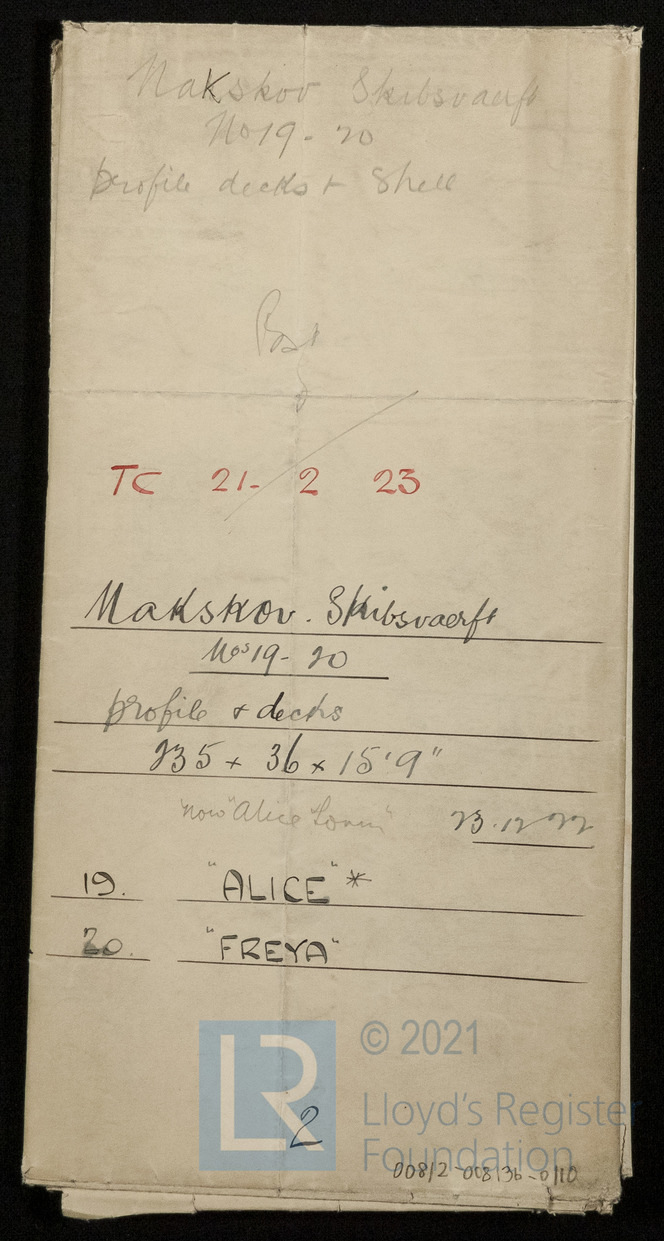 Nakskov Skibsvaerft
No 19 - 20
profile decks + Shell
TC 21 - 2 23
Nakskov. Skibsvaerft
Nos 19 - 20
profile + decks
235 x 36 x 15'9"
now "Alice
23.12 22
19. "ALICE" *
20. "FREYA"
LR
© 2021
Lloyd's Register
Foundation
2
00812-00813b-0110